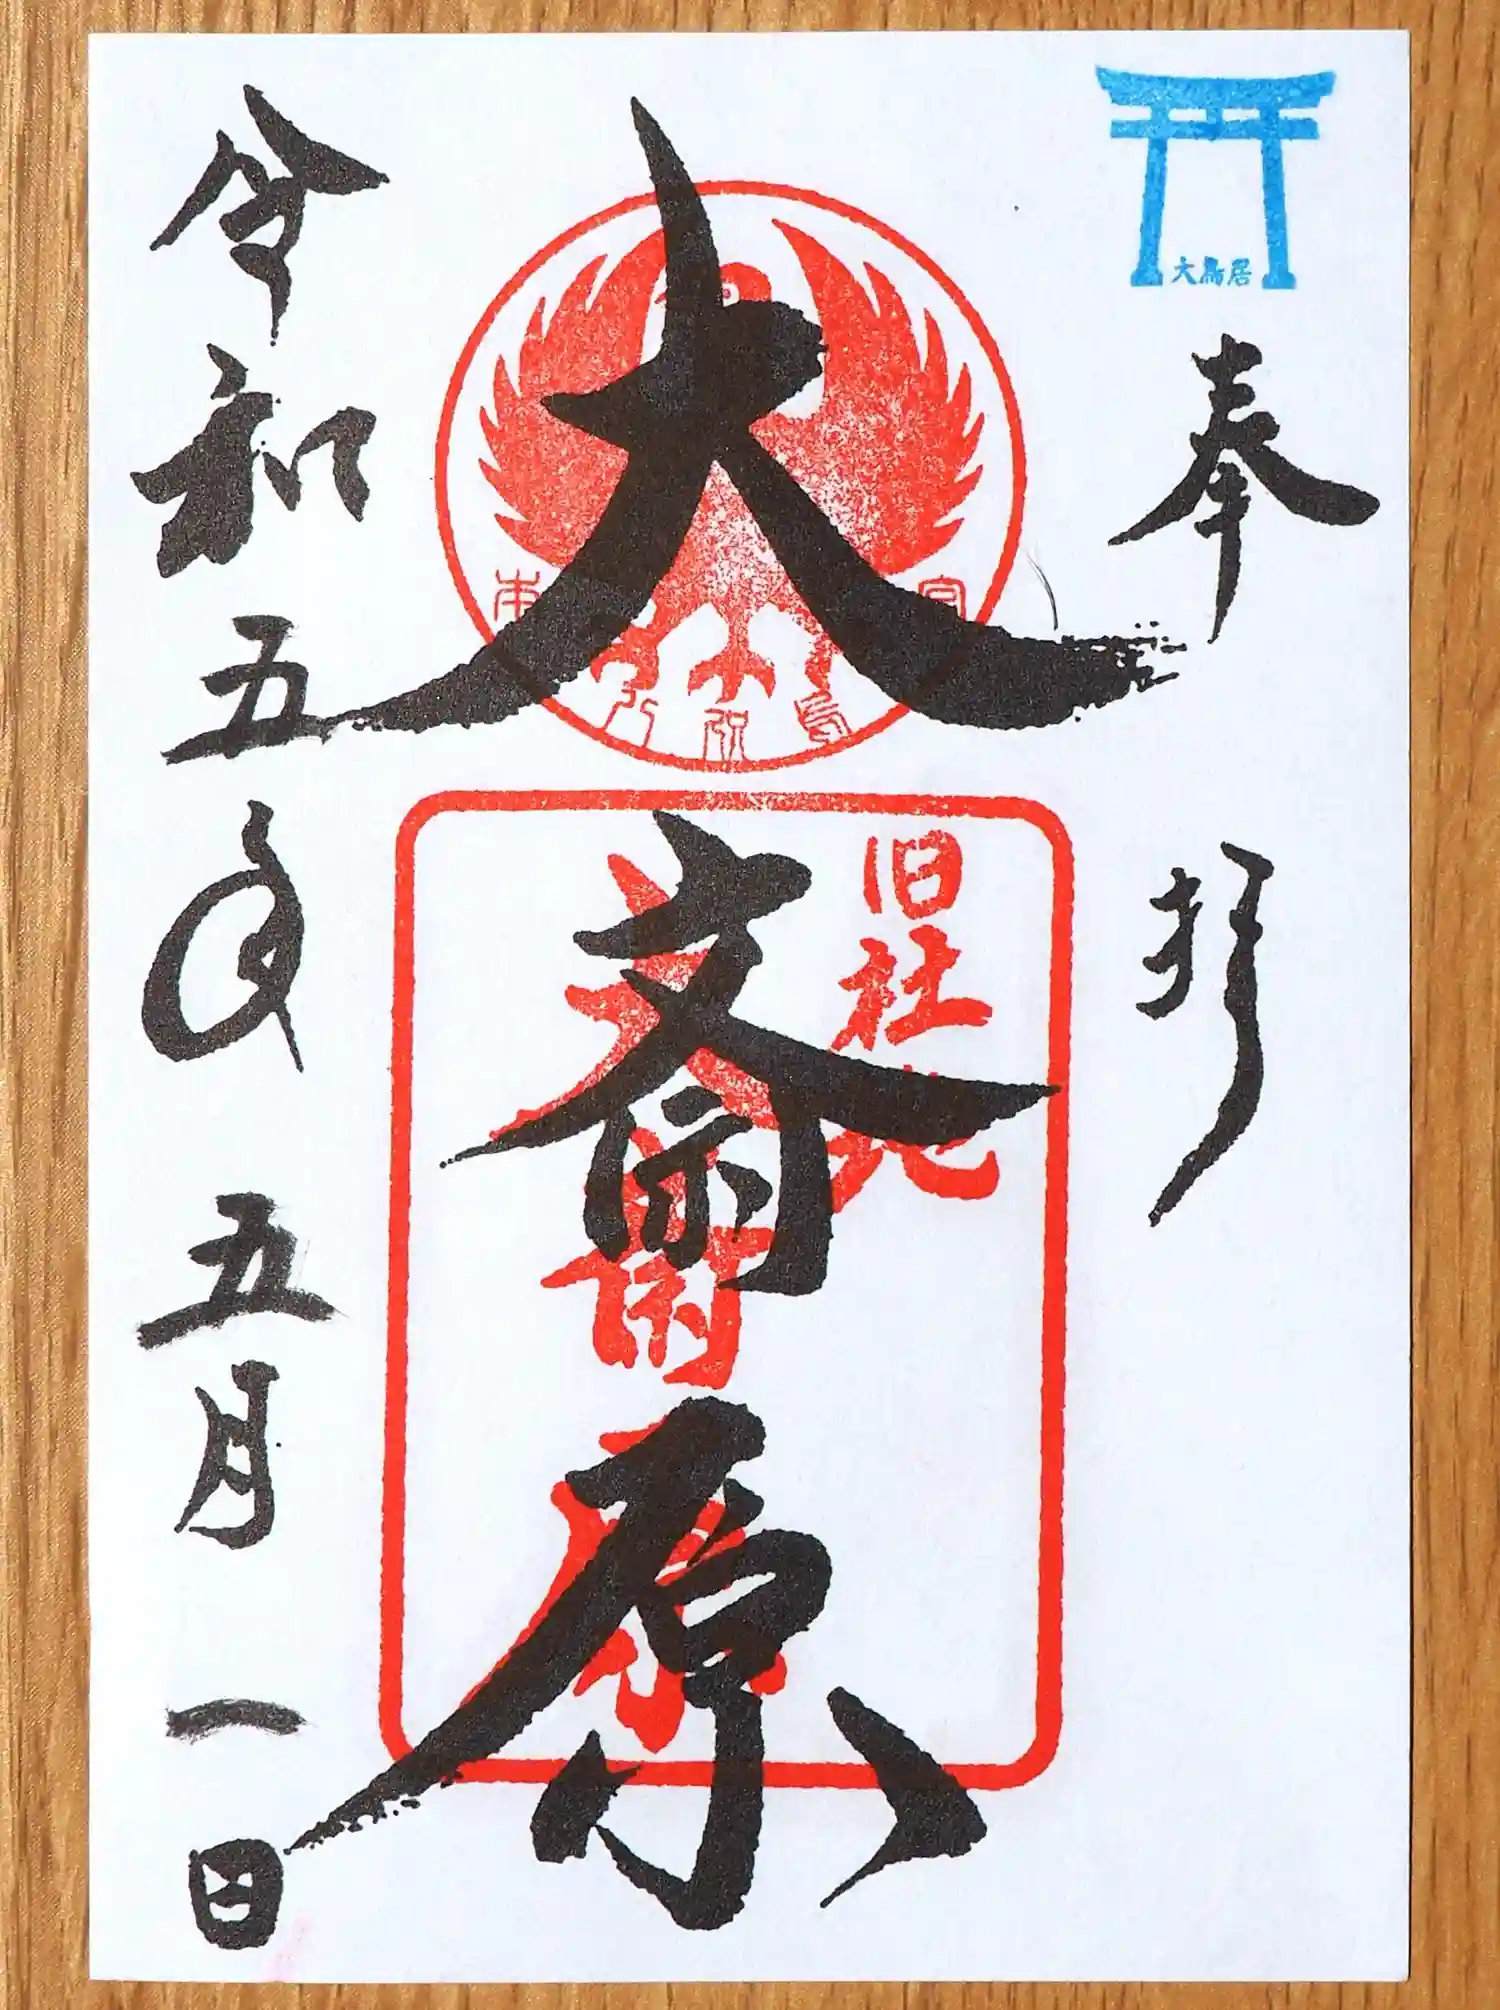 大鳥居
奉拝
大斎原
旧社地
大斎原
令和五年五月一日